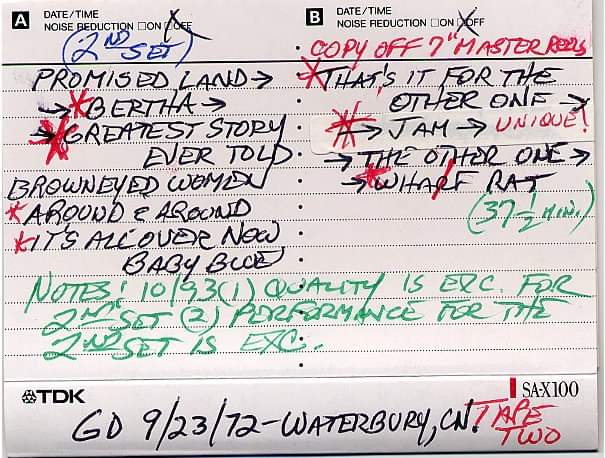 A DATE/TIME
NOISE REDUCTION ☐ON ☐OFF
(2ND SET)
PROMISED LAND →
→ *BERTHA →
→ *GREATEST STORY
EVER TOLD.
BROWNEYED WOMEN
*AROUND & AROUND
*IT'S ALL OVER NOW
BABY BLUE
B DATE/TIME
NOISE REDUCTION ☐ON ☐OFF
COPY OFF 7" MASTER REELS
*THAT'S IT FOR THE
OTHER ONE →
*→ JAM → UNIQUE!
→ THE OTHER ONE →
→ *WHARF RAT
(37 1/2 MIN.)
NOTES: 10/93 (1) QUALITY IS EXC. FOR
2ND SET (2) PERFORMANCE FOR THE
2ND SET IS EXC.
TDK
SA-X100
GD 9/23/72-WATERBURY, CN. TAPE
TWO